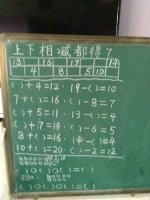 上下相减都得7
13 16 17 14
4 8 5 10
( )+4=12 · 19-( )=10
7+( )=16 · ( )-8=7
( )+5=11 · 13-( )=4
( )+7=14 · ( )-6=5
8+( )=16 · 14-( )=4
10+( )=20 · ( )-2=12
( )○( )○( )=( )
( )○( )○( )=( )